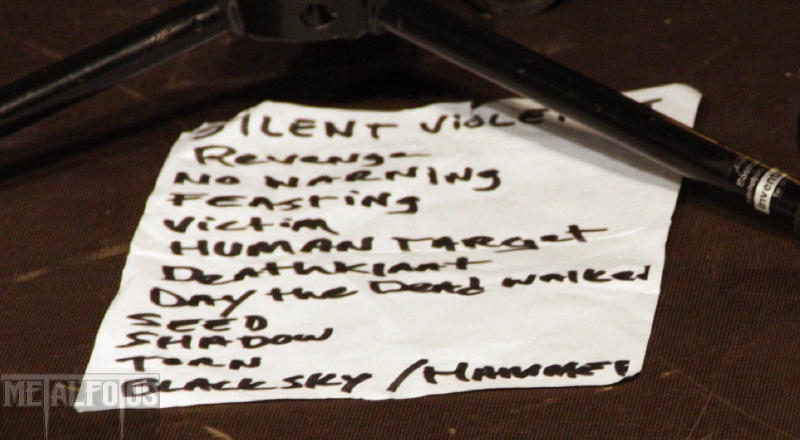 SILENT VIOLE
Revenge
NO WARNING
FEASTING
Victim
HUMAN TARGET
Day the Dead Walked
SEED
SHADOW
TORN
BLACK SKY / HAMMER
inven
METALFOTOS